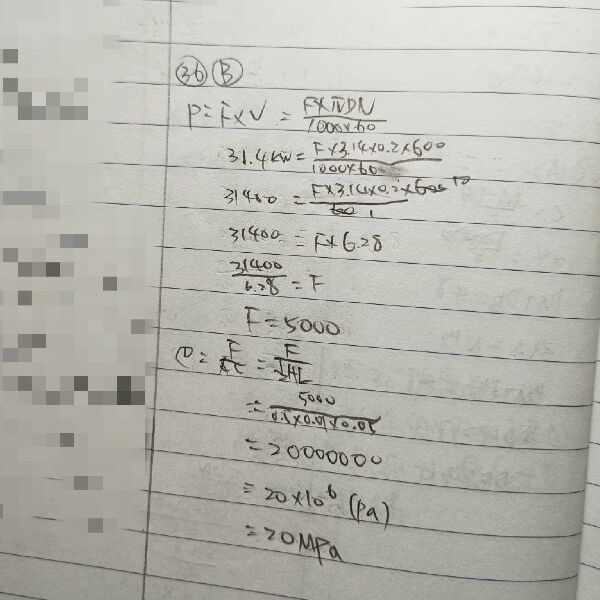 36 B
P = F×V = F×πDN / 1000×60
31.4kW = F×3.14×0.2×600 / 1000×60
31400 = F×3.14×0.2×600 10 / 60 1
31400 = F×6.28
31400 / 6.28 = F
F = 5000
= F / = F / ½HL
= 5000 / 0.5×0.01×0.05
= 20000000
= 20×10⁶ (Pa)
= 20MPa